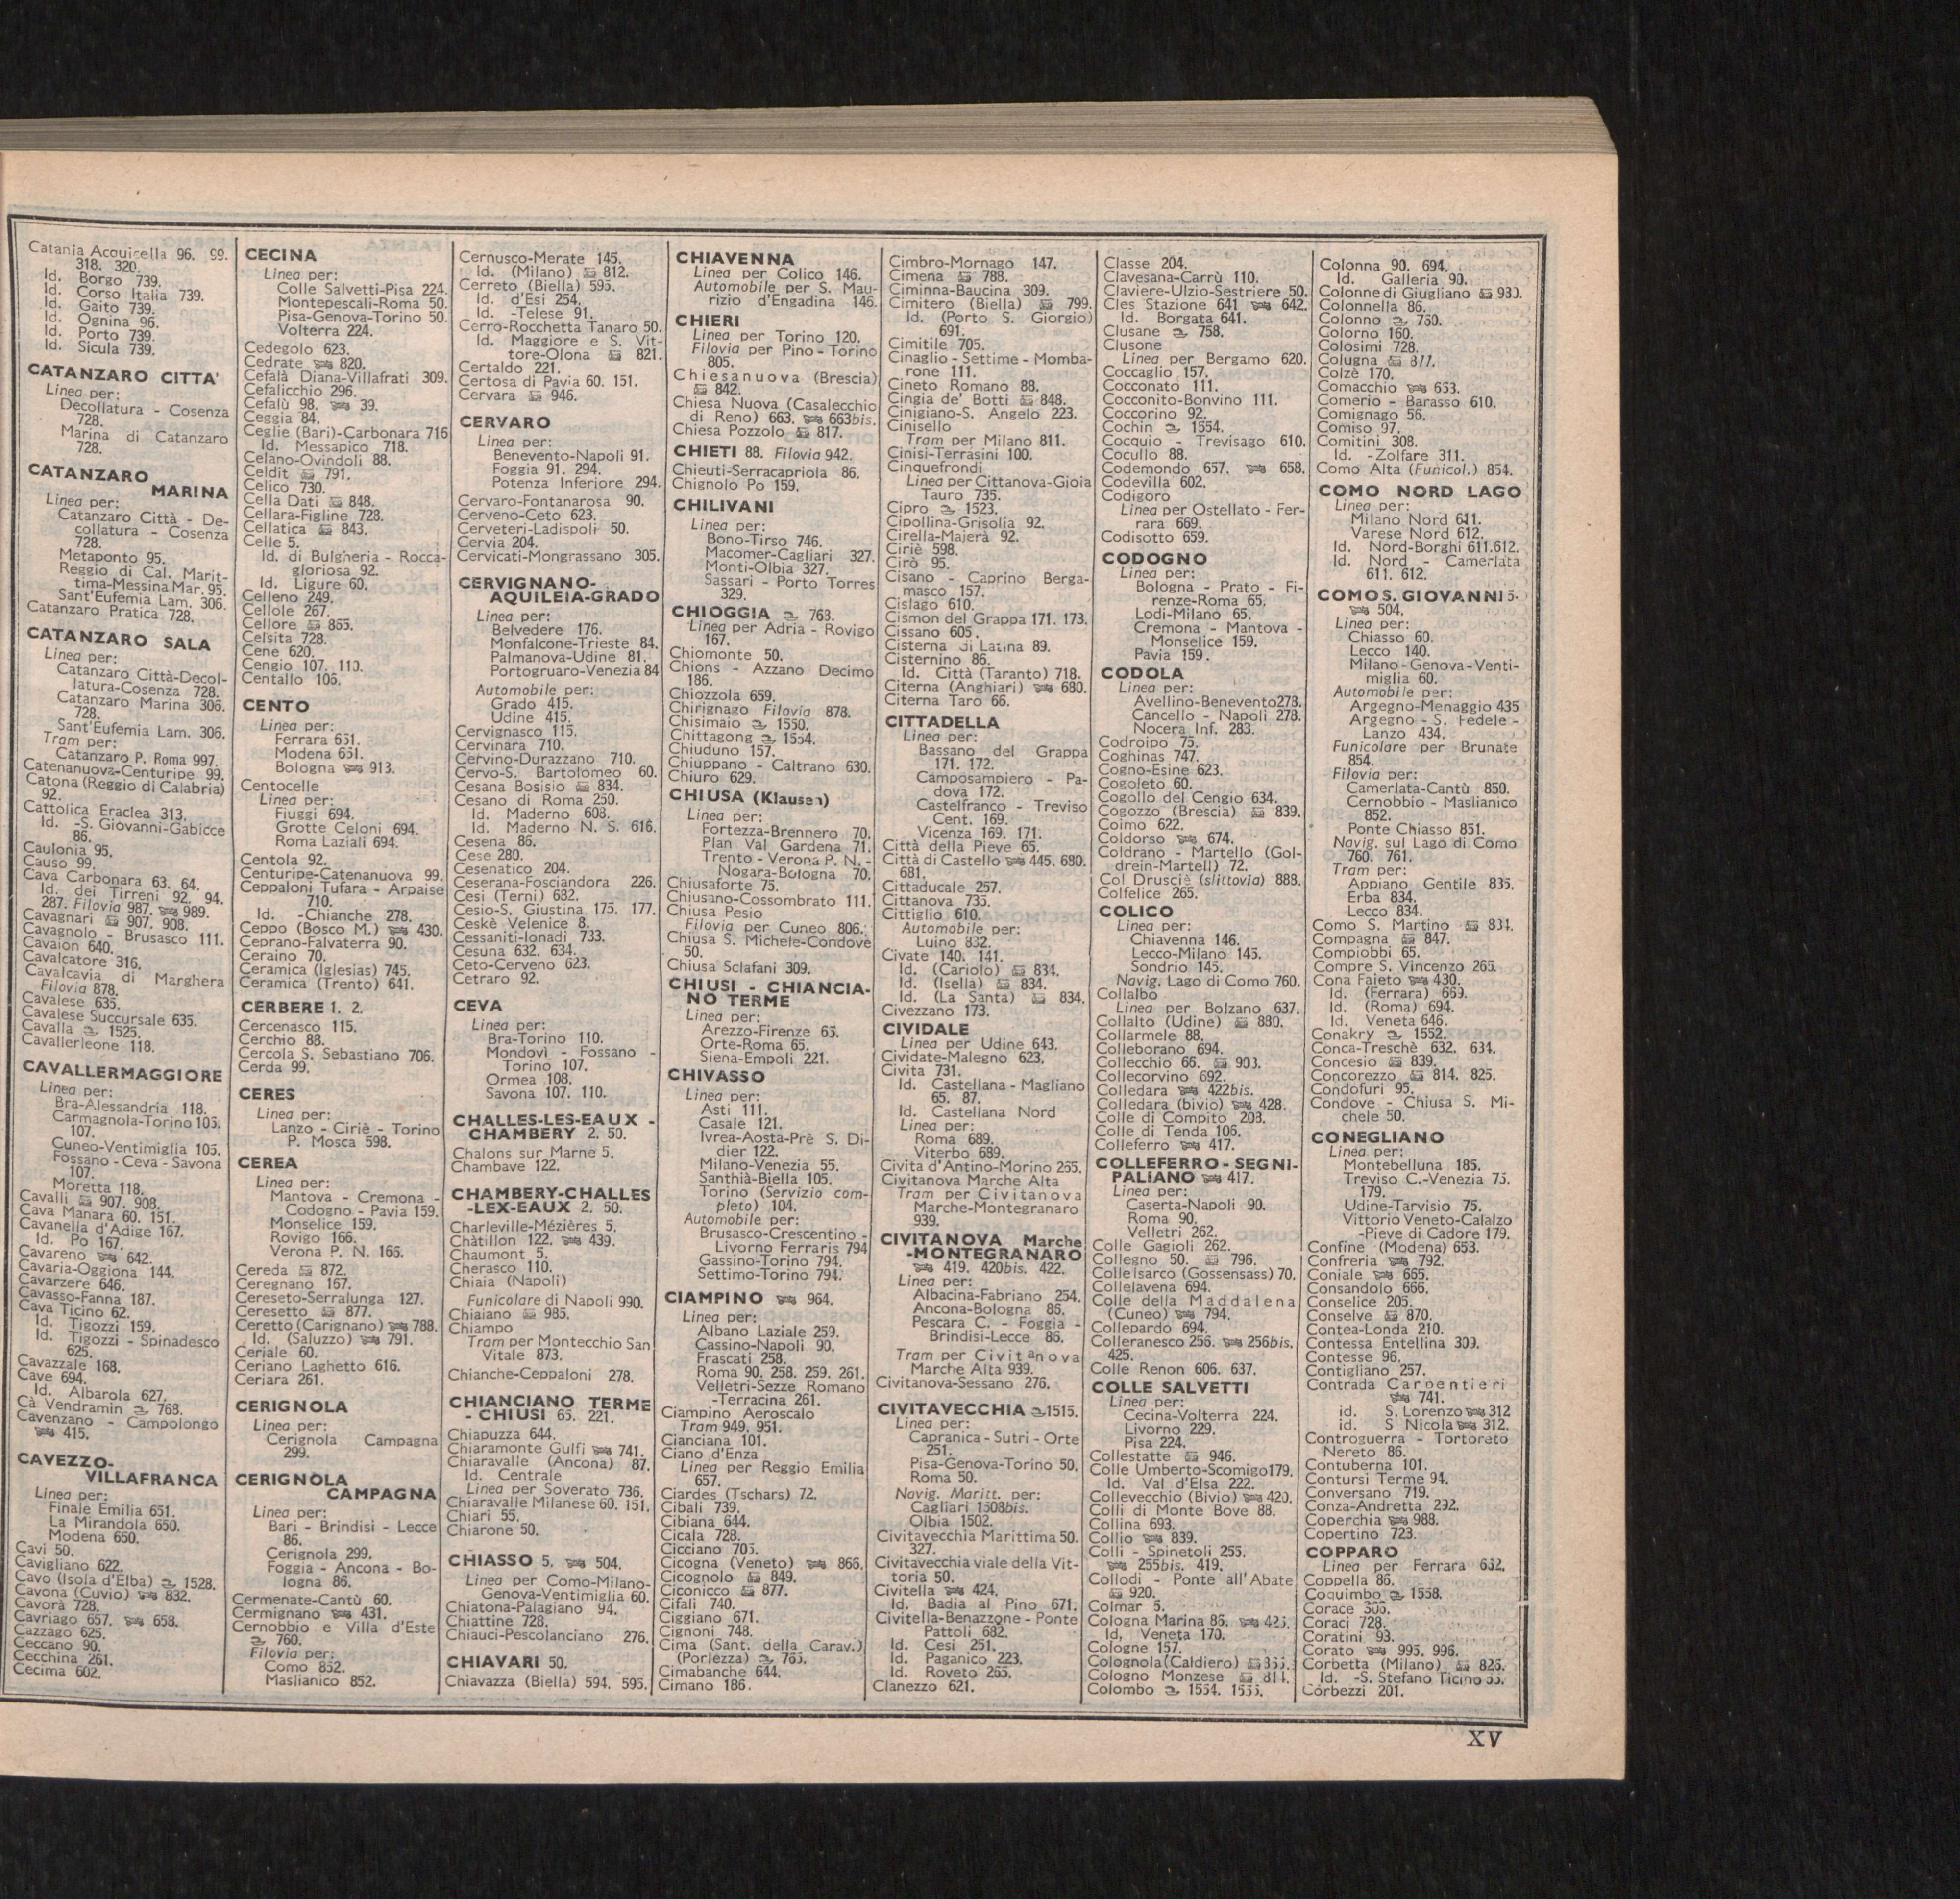 Catania Acquicella 96. 99.
318. 320.
Id. Borgo 739.
Id. Corso Italia 739.
Id. Gaito 739.
Id. Ognina 96.
Id. Porto 739.
Id. Sicula 739.
CATANZARO CITTA'
Linea per:
Decollatura - Cosenza
728.
Marina di Catanzaro
728.
CATANZARO
MARINA
Linea per:
Catanzaro Città - De-
collatura - Cosenza
728.
Metaponto 95.
Reggio di Cal. Marit-
tima-Messina Mar. 95.
Sant'Eufemia Lam. 306.
Catanzaro Pratica 728.
CATANZARO SALA
Linea per:
Catanzaro Città-Decol-
latura-Cosenza 728.
Catanzaro Marina 306.
728.
Sant'Eufemia Lam. 306.
Tram per:
Catanzaro P. Roma 997.
Catenanuova-Centuripe 99.
Catona (Reggio di Calabria)
92.
Cattolica Eraclea 313.
Id. -S. Giovanni-Gabicce
86.
Caulonia 95.
Causo 99.
Cava Carbonara 63. 64.
Id. dei Tirreni 92. 94.
287. Filovia 987. 989.
Cavagnari 907. 908.
Cavagnolo - Brusasco 111.
Cavaion 640.
Cavalcatore 316.
Cavalcavia di Marghera
Filovia 878.
Cavalese 635.
Cavalese Succursale 635.
Cavalla 1525.
Cavallerleone 118.
CAVALLERMAGGIORE
Linea per:
Bra-Alessandria 118.
Carmagnola-Torino 105.
107.
Cuneo-Ventimiglia 105.
Fossano - Ceva - Savona
107.
Moretta 118.
Cavalli 907. 908.
Cava Manara 60. 151.
Cavanella d'Adige 167.
Id. Po 167.
Cavareno 642.
Cavaria-Oggiona 144.
Cavarzere 646.
Cavasso-Fanna 187.
Cava Ticino 62.
Id. Tigozzi 159.
Id. Tigozzi - Spinadesco
625.
Cavazzale 168.
Cave 694.
Id. Albarola 627.
Cà Vendramin 768.
Cavenzano - Campolongo
415.
CAVEZZO-
VILLAFRANCA
Linea per:
Finale Emilia 651.
La Mirandola 650.
Modena 650.
Cavi 50.
Cavigliano 622.
Cavo (Isola d'Elba) 1528.
Cavona (Cuvio) 832.
Cavorà 728.
Cavriago 657. 658.
Cazzago 625.
Ceccano 90.
Cecchina 261.
Cecima 602.
CECINA
Linea per:
Colle Salvetti-Pisa 224.
Montepescali-Roma 50.
Pisa-Genova-Torino 50.
Volterra 224.
Cedegolo 623.
Cedrate 820.
Cefalà Diana-Villafrati 309.
Cefalicchio 296.
Cefalù 98. 39.
Ceggia 84.
Ceglie (Bari)-Carbonara 716
Id. Messapico 718.
Celano-Ovindoli 88.
Celdit 791.
Celico 730.
Cella Dati 848.
Cellara-Figline 728.
Cellatica 843.
Celle 5.
Id. di Bulgheria - Rocca-
gloriosa 92.
Id. Ligure 60.
Celleno 249.
Cellole 267.
Cellore 865.
Celsita 728.
Cene 620.
Cengio 107. 110.
Centallo 106.
CENTO
Linea per:
Ferrara 651.
Modena 651.
Bologna 913.
Centocelle
Linea per:
Fiuggi 694.
Grotte Celoni 694.
Roma Laziali 694.
Centola 92.
Centuripe-Catenanuova 99.
Ceppaloni Tufara - Arpaise
710.
Id. -Chianche 278.
Ceppo (Bosco M.) 430.
Ceprano-Falvaterra 90.
Ceraino 70.
Ceramica (Iglesias) 745.
Ceramica (Trento) 641.
CERBERE 1. 2.
Cercenasco 115.
Cerchio 88.
Cercola S. Sebastiano 706.
Cerda 99.
CERES
Linea per:
Lanzo - Ciriè - Torino
P. Mosca 598.
CEREA
Linea per:
Mantova - Cremona -
Codogno - Pavia 159.
Monselice 159.
Rovigo 166.
Verona P. N. 166.
Cereda 872.
Ceregnano 167.
Cereseto-Serralunga 127.
Ceresetto 877.
Ceretto (Carignano) 788.
Id. (Saluzzo) 791.
Ceriale 60.
Ceriano Laghetto 616.
Ceriara 261.
CERIGNOLA
Linea per:
Cerignola Campagna
299.
CERIGNOLA
CAMPAGNA
Linea per:
Bari - Brindisi - Lecce
86.
Cerignola 299.
Foggia - Ancona - Bo-
logna 86.
Cermenate-Cantù 60.
Cermignano 431.
Cernobbio e Villa d'Este
760.
Filovia per:
Como 852.
Maslianico 852.
Cernusco-Merate 145.
Id. (Milano) 812.
Cerreto (Biella) 595.
Id. d'Esi 254.
Id. -Telese 91.
Cerro-Rocchetta Tanaro 50.
Id. Maggiore e S. Vit-
tore-Olona 821.
Certaldo 221.
Certosa di Pavia 60. 151.
Cervara 946.
CERVARO
Linea per:
Benevento-Napoli 91.
Foggia 91. 294.
Potenza Inferiore 294.
Cervaro-Fontanarosa 90.
Cerveno-Ceto 623.
Cerveteri-Ladispoli 50.
Cervia 204.
Cervicati-Mongrassano 305.
CERVIGNANO-
AQUILEIA-GRADO
Linea per:
Belvedere 176.
Monfalcone-Trieste 84.
Palmanova-Udine 81.
Portogruaro-Venezia 84
Automobile per:
Grado 415.
Udine 415.
Cervignasco 115.
Cervinara 710.
Cervino-Durazzano 710.
Cervo-S. Bartolomeo 60.
Cesana Bosisio 834.
Cesano di Roma 250.
Id. Maderno 608.
Id. Maderno N. S. 616.
Cesena 86.
Cese 280.
Cesenatico 204.
Ceserana-Fosciandora 226.
Cesi (Terni) 682.
Cesio-S. Giustina 175. 177.
Ceskè Velenice 8.
Cessaniti-Ionadi 733.
Cesuna 632. 634.
Ceto-Cerveno 623.
Cetraro 92.
CEVA
Linea per:
Bra-Torino 110.
Mondovì - Fossano -
Torino 107.
Ormea 108.
Savona 107. 110.
CHALLES-LES-EAUX -
CHAMBERY 2. 50.
Chalons sur Marne 5.
Chambave 122.
CHAMBERY-CHALLES
-LEX-EAUX 2. 50.
Charleville-Mézières 5.
Châtillon 122. 439.
Chaumont 5.
Cherasco 110.
Chiaia (Napoli)
Funicolare di Napoli 990.
Chiaiano 985.
Chiampo
Tram per Montecchio San
Vitale 873.
Chianche-Ceppaloni 278.
CHIANCIANO TERME
- CHIUSI 65. 221.
Chiapuzza 644.
Chiaramonte Gulfi 741.
Chiaravalle (Ancona) 87.
Id. Centrale
Linea per Soverato 736.
Chiaravalle Milanese 60. 151.
Chiari 55.
Chiarone 50.
CHIASSO 5. 504.
Linea per Como-Milano-
Genova-Ventimiglia 60.
Chiatona-Palagiano 94.
Chiattine 728.
Chiauci-Pescolanciano 276.
CHIAVARI 50.
Chiavazza (Biella) 594. 595.
CHIAVENNA
Linea per Colico 146.
Automobile per S. Mau-
rizio d'Engadina 146.
CHIERI
Linea per Torino 120.
Filovia per Pino - Torino
805.
Chiesanuova (Brescia)
842.
Chiesa Nuova (Casalecchio
di Reno) 663. 663bis.
Chiesa Pozzolo 817.
CHIETI 88. Filovia 942.
Chieuti-Serracapriola 86.
Chignolo Po 159.
CHILIVANI
Linea per:
Bono-Tirso 746.
Macomer-Cagliari 327.
Monti-Olbia 327.
Sassari - Porto Torres
329.
CHIOGGIA 763.
Linea per Adria - Rovigo
167.
Chiomonte 50.
Chions - Azzano Decimo
186.
Chiozzola 659.
Chirignago Filovia 878.
Chisimaio 1550.
Chittagong 1554.
Chiuduno 157.
Chiuppano - Caltrano 630.
Chiuro 629.
CHIUSA (Klausen)
Linea per:
Fortezza-Brennero 70.
Plan Val Gardena 71.
Trento - Verona P. N. -
Nogara-Bologna 70.
Chiusaforte 75.
Chiusano-Cossombrato 111.
Chiusa Pesio
Filovia per Cuneo 806.
Chiusa S. Michele-Condove
50.
Chiusa Sclafani 309.
CHIUSI - CHIANCIA-
NO TERME
Linea per:
Arezzo-Firenze 65.
Orte-Roma 65.
Siena-Empoli 221.
CHIVASSO
Linea per:
Asti 111.
Casale 121.
Ivrea-Aosta-Prè S. Di-
dier 122.
Milano-Venezia 55.
Santhià-Biella 105.
Torino (Servizio com-
pleto) 104.
Automobile per:
Brusasco-Crescentino -
Livorno Ferraris 794
Gassino-Torino 794.
Settimo-Torino 794.
CIAMPINO 964.
Linea per:
Albano Laziale 259.
Cassino-Napoli 90.
Frascati 258.
Roma 90. 258. 259. 261.
Velletri-Sezze Romano
-Terracina 261.
Ciampino Aeroscalo
Tram 949. 951.
Cianciana 101.
Ciano d'Enza
Linea per Reggio Emilia
657.
Ciardes (Tschars) 72.
Cibali 739.
Cibiana 644.
Cicala 728.
Cicciano 705.
Cicogna (Veneto) 866.
Cicognolo 849.
Ciconicco 877.
Cifali 740.
Ciggiano 671.
Cignoni 748.
Cima (Sant. della Carav.)
(Porlezza) 765.
Cimabanche 644.
Cimano 186.
Cimbro-Mornago 147.
Cimena 788.
Ciminna-Baucina 309.
Cimitero (Biella) 799.
Id. (Porto S. Giorgio)
691.
Cimitile 705.
Cinaglio - Settime - Momba-
rone 111.
Cineto Romano 88.
Cingia de' Botti 848.
Cinigiano-S. Angelo 223.
Cinisello
Tram per Milano 811.
Cinisi-Terrasini 100.
Cinquefrondi
Linea per Cittanova-Gioia
Tauro 735.
Cipro 1523.
Cipollina-Grisolia 92.
Cirella-Majerà 92.
Ciriè 598.
Cirò 95.
Cisano - Caprino Berga-
masco 157.
Cislago 610.
Cismon del Grappa 171. 173.
Cissano 605.
Cisterna di Latina 89.
Cisternino 86.
Id. Città (Taranto) 718.
Citerna (Anghiari) 680.
Citerna Taro 66.
CITTADELLA
Linea per:
Bassano del Grappa
171. 172.
Camposampiero - Pa-
dova 172.
Castelfranco - Treviso
Cent. 169.
Vicenza 169. 171.
Città della Pieve 65.
Città di Castello 445. 680.
681.
Cittaducale 257.
Cittanova 735.
Cittiglio 610.
Automobile per:
Luino 832.
Civate 140. 141.
Id. (Cariolo) 834.
Id. (Isella) 834.
Id. (La Santa) 834.
Civezzano 173.
CIVIDALE
Linea per Udine 643.
Cividate-Malegno 623.
Civita 731.
Id. Castellana - Magliano
65. 87.
Id. Castellana Nord
Linea per:
Roma 689.
Viterbo 689.
Civita d'Antino-Morino 265.
Civitanova Marche Alta
Tram per Civitanova
Marche-Montegranaro
939.
CIVITANOVA Marche
-MONTEGRANARO
419. 420bis. 422.
Linea per:
Albacina-Fabriano 254.
Ancona-Bologna 86.
Pescara C. - Foggia -
Brindisi-Lecce 86.
Tram per Civitanova
Marche Alta 939.
Civitanova-Sessano 276.
CIVITAVECCHIA 1515.
Linea per:
Capranica - Sutri - Orte
251.
Pisa-Genova-Torino 50.
Roma 50.
Navig. Maritt. per:
Cagliari 1508bis.
Olbia 1502.
Civitavecchia Marittima 50.
327.
Civitavecchia viale della Vit-
toria 50.
Civitella 424.
Id. Badia al Pino 671.
Civitella-Benazzone - Ponte
Pattoli 682.
Id. Cesi 251.
Id. Paganico 223.
Id. Roveto 265.
Clanezzo 621.
Classe 204.
Clavesana-Carrù 110.
Claviere-Ulzio-Sestriere 50.
Cles Stazione 641 642.
Id. Borgata 641.
Clusane 758.
Clusone
Linea per Bergamo 620.
Coccaglio 157.
Cocconato 111.
Cocconito-Bonvino 111.
Coccorino 92.
Cochin 1554.
Cocquio - Trevisago 610.
Cocullo 88.
Codemondo 657. 658.
Codevilla 602.
Codigoro
Linea per Ostellato - Fer-
rara 669.
Codisotto 659.
CODOGNO
Linea per:
Bologna - Prato - Fi-
renze-Roma 65.
Lodi-Milano 65.
Cremona - Mantova -
Monselice 159.
Pavia 159.
CODOLA
Linea per:
Avellino-Benevento 278.
Cancello - Napoli 278.
Nocera Inf. 283.
Codroipo 75.
Coghinas 747.
Cogno-Esine 623.
Cogoleto 60.
Cogollo del Cengio 634.
Cogozzo (Brescia) 839.
Coimo 622.
Coldorso 674.
Coldrano - Martello (Gol-
drein-Martell) 72.
Col Drusciè (slittovia) 888.
Colfelice 265.
COLICO
Linea per:
Chiavenna 146.
Lecco-Milano 145.
Sondrio 145.
Navig. Lago di Como 760.
Collalbo
Linea per Bolzano 637.
Collalto (Udine) 880.
Collarmele 88.
Colleborano 694.
Collecchio 66. 903.
Collecorvino 692.
Colledara 422bis.
Colledara (bivio) 428.
Colle di Compito 208.
Colle di Tenda 106.
Colleferro 417.
COLLEFERRO - SEGNI-
PALIANO 417.
Linea per:
Caserta-Napoli 90.
Roma 90.
Velletri 262.
Colle Gagioli 262.
Collegno 50. 796.
Colleisarco (Gossensass) 70.
Collelavena 694.
Colle della Maddalena
(Cuneo) 794.
Collepardo 694.
Colleranesco 256. 256bis.
425.
Colle Renon 606. 637.
COLLE SALVETTI
Linea per:
Cecina-Volterra 224.
Livorno 229.
Pisa 224.
Collestatte 946.
Colle Umberto-Scomigo 179.
Id. Val d'Elsa 222.
Collevecchio (Bivio) 420.
Colli di Monte Bove 88.
Collina 693.
Collio 839.
Colli - Spinetoli 255.
255bis. 419.
Collodi - Ponte all'Abate
920.
Colmar 5.
Cologna Marina 86.
Id. Veneta 170.
Cologne 157.
Colognola (Caldiero)
Cologno Monzese 814.
Colombo 1554. 1555.
Colonna 90. 694.
Id. Galleria 90.
Colonne di Giugliano 980.
Colonnella 86.
Colonno 760.
Colorno 160.
Colosimi 728.
Colugna 877.
Colzè 170.
Comacchio 653.
Comerio - Barasso 610.
Comignago 56.
Comiso 97.
Comitini 308.
Id. -Zolfare 311.
Como Alta (Funicol.) 854.
COMO NORD LAGO
Linea per:
Milano Nord 611.
Varese Nord 612.
Id. Nord-Borghi 611.612.
Id. Nord - Camerlata
611. 612.
COMO S. GIOVANNI 5.
504.
Linea per:
Chiasso 60.
Lecco 140.
Milano - Genova - Venti-
miglia 60.
Automobile per:
Argegno-Menaggio 435
Argegno - S. Fedele -
Lanzo 434.
Funicolare per Brunate
854.
Filovia per:
Camerlata-Cantù 850.
Cernobbio - Maslianico
852.
Ponte Chiasso 851.
Navig. sul Lago di Como
760. 761.
Tram per:
Appiano Gentile 835.
Erba 834.
Lecco 834.
Como S. Martino 834.
Compagna 847.
Compiobbi 65.
Compre S. Vincenzo 265.
Cona Faieto 430.
Id. (Ferrara) 669.
Id. (Roma) 694.
Id. Veneta 646.
Conakry 1552.
Conca-Treschè 632. 634.
Concesio 839.
Concorezzo 814. 825.
Condofuri 95.
Condove - Chiusa S. Mi-
chele 50.
CONEGLIANO
Linea per:
Montebelluna 185.
Treviso C.-Venezia 75.
179.
Udine-Tarvisio 75.
Vittorio Veneto-Calalzo
-Pieve di Cadore 179.
Confine (Modena) 653.
Confreria 792.
Coniale 665.
Consandolo 666.
Conselice 205.
Conselve 870.
Contea-Londa 210.
Contessa Entellina 309.
Contesse 96.
Contigliano 257.
Contrada Carpentieri
741.
id. S. Lorenzo 312
id. S Nicola 312.
Controguerra - Tortoreto
Nereto 86.
Contuberna 101.
Contursi Terme 94.
Conversano 719.
Conza-Andretta 292.
Coperchia 988.
Copertino 723.
COPPARO
Linea per Ferrara 662.
Coppella 86.
Coquimbo 1558.
Corace 306.
Coraci 728.
Coratini 93.
Corato 995. 996.
Corbetta (Milano) 826.
Id. -S. Stefano Ticino 55.
Corbezzi 201.
XV